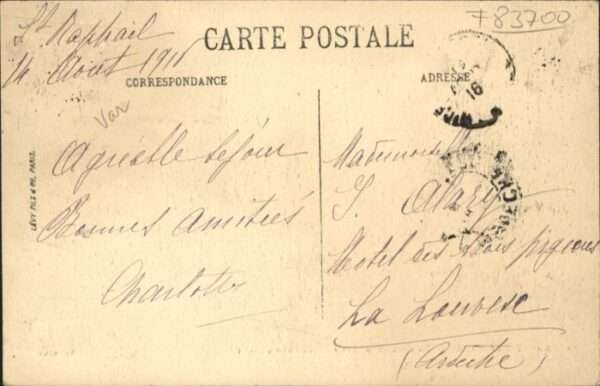 F83700
St Raphaël
14 Août 1916
CARTE POSTALE
CORRESPONDANCE
ADRESSE
Var
LÉVY FILS & Cie, PARIS.
Agréable séjour
Bonnes amitiés
Charlotte
16
Mademoiselle
J. Alary
Hotel des trois pigeons
La Louvesc
(Ardèche)